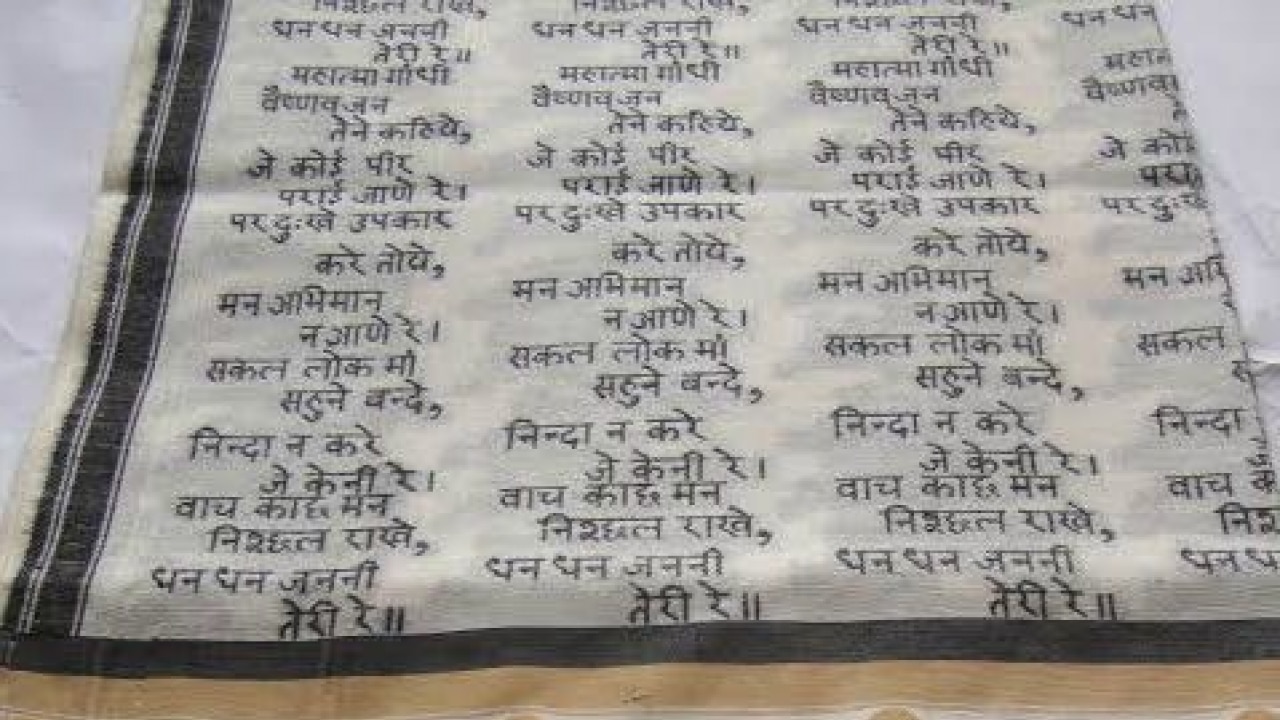 निश्छल राखे,
धन धन जननी
तेरी रे॥
महात्मा गांधी
वैष्णव जन
तेने कहिये,
जे कोई पीर
पराई जाणे रे।
पर दुःखे उपकार
करे तोये,
मन अभिमान
न आणे रे।
सकल लोक मां
सहुने बन्दे,
निन्दा न करे
जे केनी रे।
वाच काछ मन
निश्छल राखे,
धन धन जननी
तेरी रे॥
निश्छल राखे,
धन धन जननी
तेरी रे॥
महात्मा गांधी
वैष्णव जन
तेने कहिये,
जे कोई पीर
पराई जाणे रे।
पर दुःखे उपकार
करे तोये,
मन अभिमान
न आणे रे।
सकल लोक मां
सहुने बन्दे,
निन्दा न करे
जे केनी रे।
वाच काछ मन
निश्छल राखे,
धन धन जननी
तेरी रे॥
निश्छल राखे,
धन धन जननी
तेरी रे॥
महात्मा गांधी
वैष्णव जन
तेने कहिये,
जे कोई पीर
पराई जाणे रे।
पर दुःखे उपकार
करे तोये,
मन अभिमान
न आणे रे।
सकल लोक मां
सहुने बन्दे,
निन्दा न करे
जे केनी रे।
वाच काछ मन
निश्छल राखे,
धन धन जननी
तेरी रे॥
धन धन
वैष्णव
जे
पर
मन
सकल
निन्दा
वाच
धन